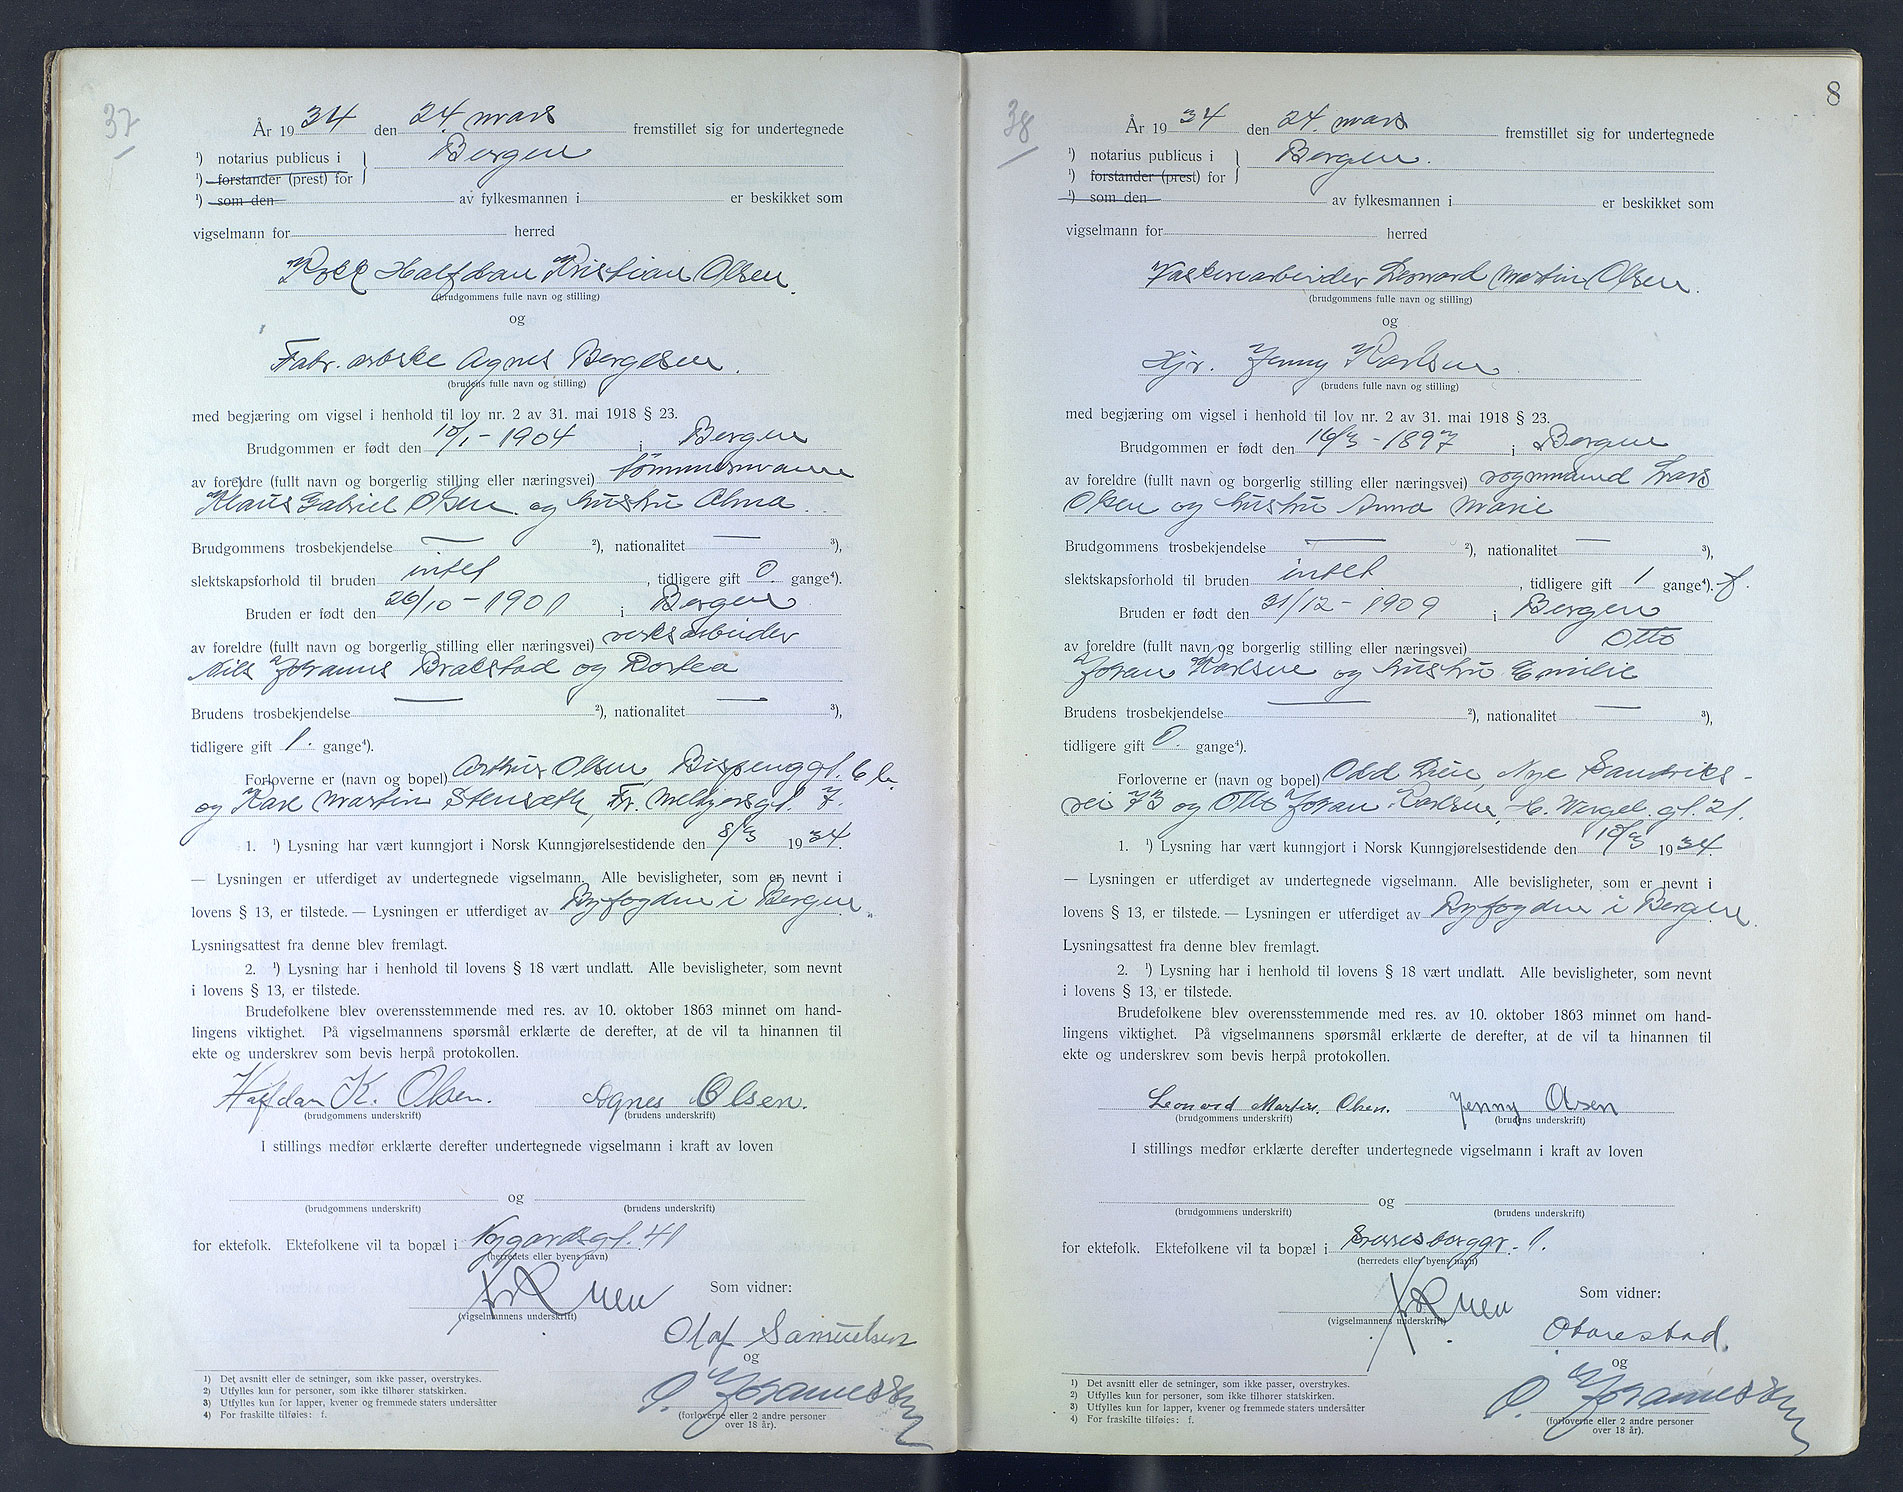 37
År 1934 den 24. mars fremstillet sig for undertegnede
¹) notarius publicus i Bergen
¹) forstander (prest) for
¹) som den av fylkesmannen i er beskikket som
vigselmann for herred
Kokk Halfdan Kristian Olsen.
(brudgommens fulle navn og stilling)
og
Fabr. arbske Agnes Bergesen.
(brudens fulle navn og stilling)
med begjæring om vigsel i henhold til lov nr. 2 av 31. mai 1918 § 23.
Brudgommen er født den 10/1 - 1904 i Bergen
av foreldre (fullt navn og borgerlig stilling eller næringsvei) tømmermann
Klaus Gabriel Olsen og hustru Alma.
Brudgommens trosbekjendelse — ²), nationalitet — ³),
slektskapsforhold til bruden intet, tidligere gift 0. gange⁴).
Bruden er født den 26/10 - 1901 i Bergen
av foreldre (fullt navn og borgerlig stilling eller næringsvei) verksarbeider
Nils Johannes Brakstad og Dortea
Brudens trosbekjendelse — ²), nationalitet — ³),
tidligere gift 1. gange⁴).
Forloverne er (navn og bopel) Arthur Olsen, Bispenggt. 6 b.
og Kare Martin Stensæth, Fr. Meltzersgt. 7.
1. ¹) Lysning har vært kunngjort i Norsk Kunngjørelsestidende den 8/3 1934.
— Lysningen er utferdiget av undertegnede vigselmann. Alle bevisligheter, som er nevnt i
lovens § 13, er tilstede. — Lysningen er utferdiget av Byfogden i Bergen.
Lysningsattest fra denne blev fremlagt.
2. ¹) Lysning har i henhold til lovens § 18 vært undlatt. Alle bevisligheter, som nevnt
i lovens § 13, er tilstede.
Brudefolkene blev overensstemmende med res. av 10. oktober 1863 minnet om hand-
lingens viktighet. På vigselmannens spørsmål erklærte de derefter, at de vil ta hinannen til
ekte og underskrev som bevis herpå protokollen.
Halfdan K. Olsen. Agnes Olsen.
(brudgommens underskrift) (brudens underskrift)
I stillings medfør erklærte derefter undertegnede vigselmann i kraft av loven
og
(brudgommens underskrift) (brudens underskrift)
for ektefolk. Ektefolkene vil ta bopæl i Nygardsgt. 41
(herredets eller byens navn)
Som vidner:
(vigselmannens underskrift)
Olaf Samuelsen
og
O. Johannessen
(forloverne eller 2 andre personer
over 18 år).
1) Det avsnitt eller de setninger, som ikke passer, overstrykes.
2) Utfylles kun for personer, som ikke tilhører statskirken.
3) Utfylles kun for lapper, kvener og fremmede staters undersåtter
4) For fraskilte tilføies: f.
8
38
År 1934 den 24. mars fremstillet sig for undertegnede
¹) notarius publicus i Bergen.
¹) forstander (prest) for
¹) som den av fylkesmannen i er beskikket som
vigselmann for herred
Vaskeriarbeider Leonard Martin Olsen.
(brudgommens fulle navn og stilling)
og
Hjr. Jenny Karlsen.
(brudens fulle navn og stilling)
med begjæring om vigsel i henhold til lov nr. 2 av 31. mai 1918 § 23.
Brudgommen er født den 16/3 - 1897 i Bergen
av foreldre (fullt navn og borgerlig stilling eller næringsvei) vognmand Lars
Olsen og hustru Anna Marie
Brudgommens trosbekjendelse — ²), nationalitet — ³),
slektskapsforhold til bruden intet, tidligere gift 1 gange⁴). f.
Bruden er født den 31/12 - 1909 i Bergen
av foreldre (fullt navn og borgerlig stilling eller næringsvei) Otto
Johan Karlsen og hustru Emilie
Brudens trosbekjendelse — ²), nationalitet — ³),
tidligere gift 0. gange⁴).
Forloverne er (navn og bopel) Odd Lien, Nye Sandviks-
vei 73 og Otto Johan Karlsen, H. Wergel. gt. 21.
1. ¹) Lysning har vært kunngjort i Norsk Kunngjørelsestidende den 10/3 1934.
— Lysningen er utferdiget av undertegnede vigselmann. Alle bevisligheter, som er nevnt i
lovens § 13, er tilstede. — Lysningen er utferdiget av Byfogden i Bergen.
Lysningsattest fra denne blev fremlagt.
2. ¹) Lysning har i henhold til lovens § 18 vært undlatt. Alle bevisligheter, som nevnt
i lovens § 13, er tilstede.
Brudefolkene blev overensstemmende med res. av 10. oktober 1863 minnet om hand-
lingens viktighet. På vigselmannens spørsmål erklærte de derefter, at de vil ta hinannen til
ekte og underskrev som bevis herpå protokollen.
Leonard Martin. Olsen. Jenny Olsen
(brudgommens underskrift) (brudens underskrift)
I stillings medfør erklærte derefter undertegnede vigselmann i kraft av loven
og
(brudgommens underskrift) (brudens underskrift)
for ektefolk. Ektefolkene vil ta bopæl i Sverresborggt. 1.
(herredets eller byens navn)
Som vidner:
(vigselmannens underskrift)
og
O. Johannessen
(forloverne eller 2 andre personer
over 18 år).
1) Det avsnitt eller de setninger, som ikke passer, overstrykes.
2) Utfylles kun for personer, som ikke tilhører statskirken.
3) Utfylles kun for lapper, kvener og fremmede staters undersåtter
4) For fraskilte tilføies: f.